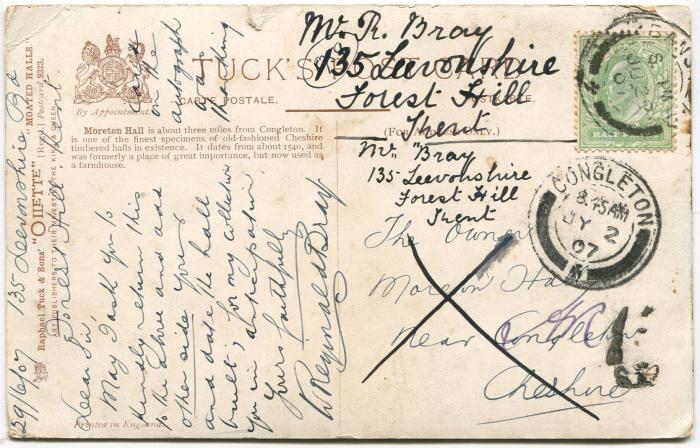 Raphael Tuck & Sons' "OILETTE" [Regd.] Postcard 9323.
"MOATED HALLS."
ART PUBLISHERS TO THEIR MAJESTIES THE KING & QUEEN.
By Appointment.
TUCK'S POST CARD
CARTE POSTALE.
Moreton Hall is about three miles from Congleton. It
is one of the finest specimens of old-fashioned Cheshire
timbered halls in existence. It dates from about 1540, and
was formerly a place of great importance, but now used as
a farmhouse.
Printed in England.
29/6/07 135 Devonshire Rd
Forest Hill Kent.
Dear Sir,
May I ask you to
kindly return this
to the above and add
other side your
and date the hall
built, for my collection
you in anticipation
Yours faithfully
W Reginald Bray
on the
autograph
was
Mr. R. Bray
135 Devonshire
Forest Hill
Kent
Mr Bray
135 Devonshire
Forest Hill
Kent
The Owner
Moreton Hall
near Congleton
Cheshire
HALFPENNY
CONGLETON
8.45 AM
JY 2
07